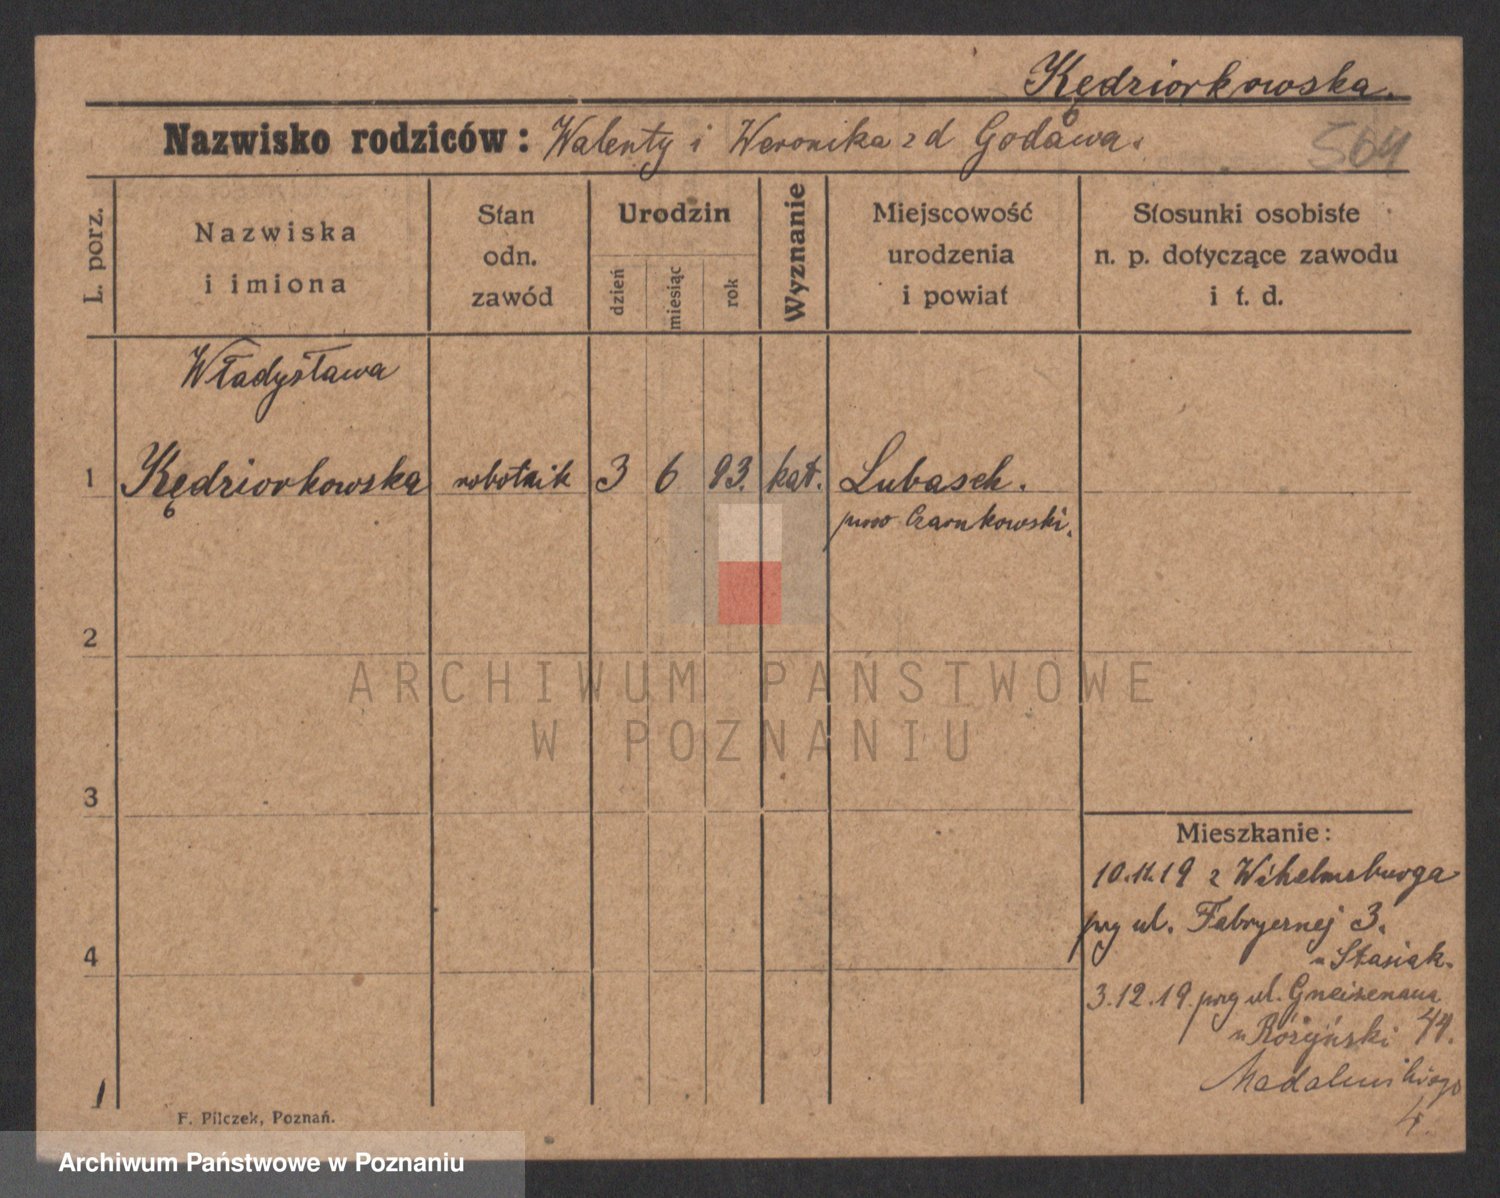 Kędziorkowska.
Nazwisko rodziców: Walenty i Weronika z d Godawa.
564
L. porz.
Nazwiska
i imiona
Stan
odn.
zawód
Urodzin
dzień
miesiąc
rok
Wyznanie
Miejscowość
urodzenia
i powiat
Stosunki osobiste
n. p. dotyczące zawodu
i t. d.
Władysława
1 Kędziorkowska robotnik 3 6 93. kat. Lubasch.
pow Czarnkowski.
2
ARCHIWUM PAŃSTWOWE
W POZNANIU
3
Mieszkanie:
10.11.19 z Wihelmsburga
prz ul. Fabrycznej 3.
u Stasiak.
4
3.12.19. prz ul. Gneisenaua
u Różyński 44.
Madalińskiego
4.
F. Pilczek, Poznań.
Archiwum Państwowe w Poznaniu